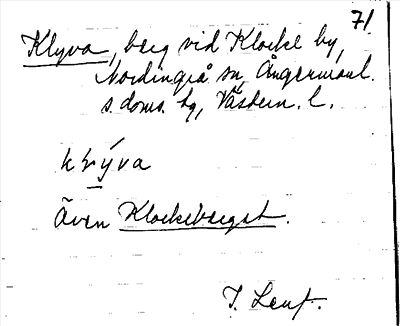 71
Klyva, berg vid Klocke by,
Nordingrå sn, Ångermanl.
s. doms. hg, Västern. l.
Även Klockeberget.